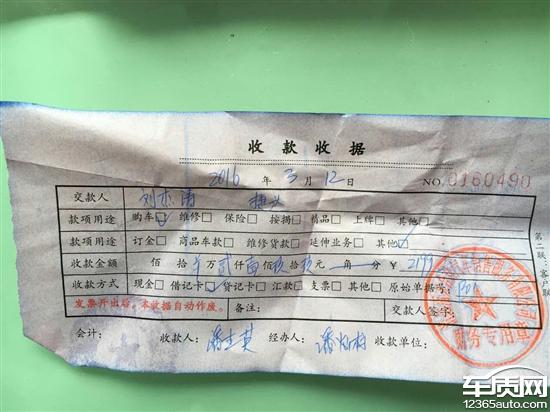 收款收据
2016 年 3 月 12 日 NO.0160490
交款人 刘杰清
款项用途 购车☑ 维修□ 保险□ 按揭□ 精品□ 上牌□ 其他□
款项用途 订金□ 商品车款□ 维修货款□ 延伸业务□ 其他☑
收款金额 佰 拾 万 贰 仟 佰 玖 拾 玖 元 角 分 ¥ 2199
收款方式 现金□ 借记卡□ 贷记卡□ 汇款□ 支票□ 其他□ 原始单据号:
发票开出后,本收据自动作废。 备注: 交款人签字:
会计: 收款人: 经办人: 收款单位:
第二联:客户联
财务专用章
车质网
12365auto.com